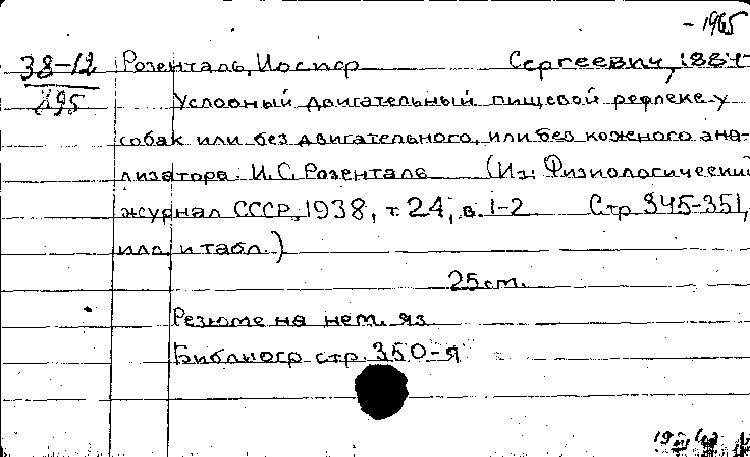 -1965
38-12 Розенталь, Иосиф Сергеевич, 1884-
195
Условный двигательный пищевой рефлекс у
собак или без двигательного, или без кожного ана-
лизатора. И.С. Розенталь (Из: Физиологический
журнал СССР, 1938, т. 24, в. 1-2. Стр 345-351,
илл. и табл.)
25 cm.
Резюме на нем. яз.
Библиогр стр. 350-я